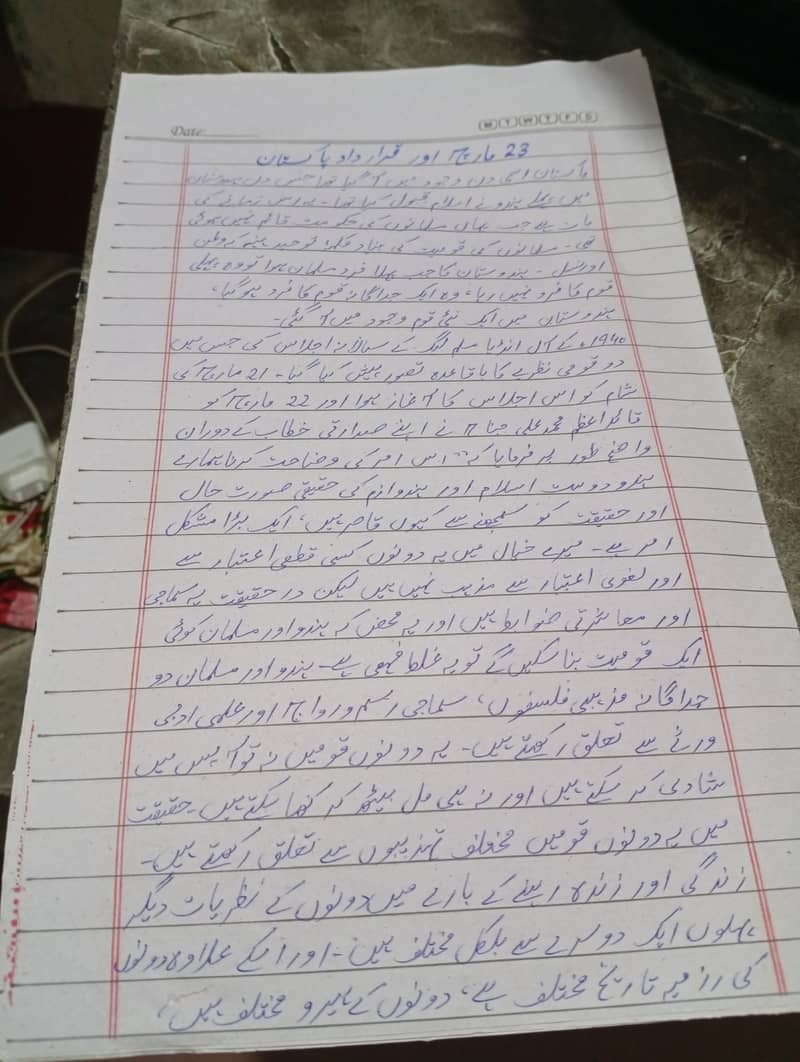 Date
M T W T F S
23 مارچ اور قرارداد پاکستان
پاکستان اسی دن وجود میں آ گیا تھا جس دن ہندوستان
میں پہلے ہندو نے اسلام قبول کیا تھا۔ یہ اس زمانے کی
بات ہے جب یہاں مسلمانوں کی حکومت قائم نہیں ہوئی
تھی۔ مسلمانوں کی قومیت کی بنیاد کلمۂ توحید ہے نہ کہ وطن
اور نسل۔ ہندوستان کا جب پہلا فرد مسلمان ہوا تو وہ پہلی
قوم کا فرد نہیں رہا، وہ ایک جداگانہ قوم کا فرد ہو گیا،
ہندوستان میں ایک نئی قوم وجود میں آ گئی۔
1940ء کے آل انڈیا مسلم لیگ کے سالانہ اجلاس کی جس میں
دو قومی نظریے کا باقاعدہ تصور پیش کیا گیا۔ 21 مارچ کی
شام کو اس اجلاس کا آغاز ہوا اور 22 مارچ کو
قائداعظم محمد علی جناح نے اپنے صدارتی خطاب کے دوران
واضح طور پر فرمایا کہ "اس امر کی وضاحت کرنا ہمارے
ہندو دوست اسلام اور ہندوازم کی حقیقی صورت حال
اور حقیقت کو سمجھنے سے کیوں قاصر ہیں، ایک بڑا مشکل
امر ہے۔ میرے خیال میں یہ دونوں کسی قطعی اعتبار سے
اور لغوی اعتبار سے مذہب نہیں ہیں لیکن در حقیقت یہ سماجی
اور معاشرتی ضوابط ہیں اور یہ محض کہ ہندو اور مسلمان کوئی
ایک قومیت بنا سکیں گے تو یہ غلط فہمی ہے۔ ہندو اور مسلمان دو
جداگانہ مذہبی فلسفوں، سماجی رسم و رواج اور علمی ادبی
ورثے سے تعلق رکھتے ہیں۔ یہ دونوں قومیں نہ تو آپس میں
شادی کر سکتے ہیں اور نہ ہی مل بیٹھ کر کھا سکتے ہیں۔ حقیقت
میں یہ دونوں قومیں مختلف تہذیبوں سے تعلق رکھتے ہیں۔
زندگی اور زندہ رہنے کے بارے میں دونوں کے نظریات دیگر
پہلوں ایک دوسرے سے بلکل مختلف ہیں۔ اور اسکے علاوہ دونوں
کی رزمیہ تاریخ مختلف ہے، دونوں کے ہیرو مختلف ہیں،